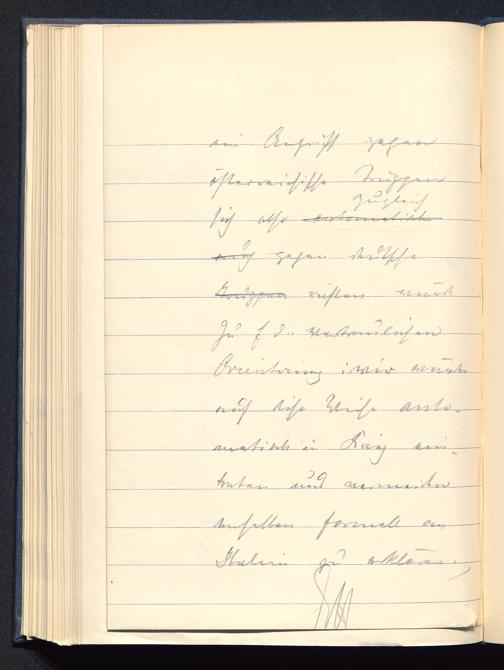 ein Angriff gegen
österreichische Truppen
zugleich
sich also automatisch
auch gegen deutsche
Truppen richten würde
Zu f. d. vertraulichen
Orientierung: wir würden
auf diese Weise auto-
matisch in Krieg ein-
treten und vermeiden
denselben formell an
Italien zu erklären.